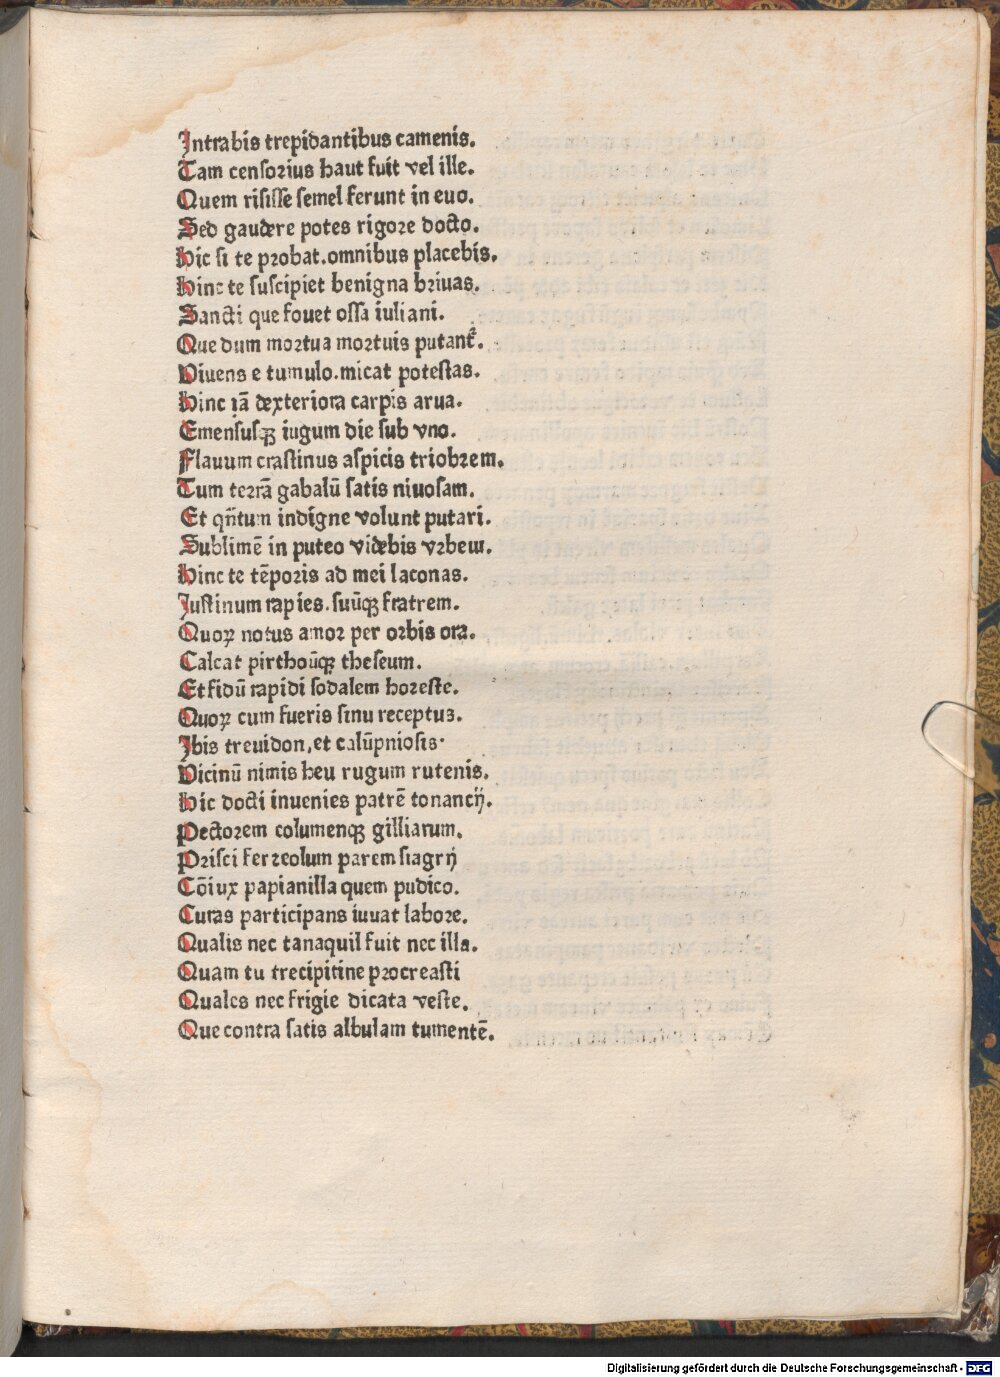 Intrabis trepidantibus camenis.
Tam censorius haut fuit vel ille.
Quem risisse semel ferunt in euo.
Sed gaudere potes rigore docto.
Hic si te probat.omnibus placebis.
Hinc te suscipiet benigna briuas.
Sancti que fouet ossa iuliani.
Que dum mortua mortuis putant᷑.
Viuens e tumulo.micat potestas.
Hinc iā dexteriora carpis arua.
Emensusqꝫ iugum die sub vno.
Flauum crastinus aspicis triobrem.
Tum terrā gabalū satis niuosam.
Et qn̄tum indigne volunt putari.
Sublimē in puteo videbis vrbem.
Hinc te tēporis ad mei laconas.
Iustinum rapies.suūqꝫ fratrem.
Quoꝝ notus amor per orbis ora.
Calcat pirthoūqꝫ theseum.
Et fidū rapidi sodalem horeste.
Quoꝝ cum fueris sinu receptus.
Ibis treuidon,et calūpniosis·
Vicinū nimis heu rugum rutenis.
Hic docti inuenies patrē tonancij.
Pectorem columenqꝫ gilliarum.
Prisci ferreolum parem siagrij
Cōiux papianilla quem pudico.
Curas participans iuuat labore.
Qualis nec tanaquil fuit nec illa.
Quam tu trecipitine procreasti
Quales nec frigie dicata veste.
Que contra satis albulam tumentē.
Digitalisierung gefördert durch die Deutsche Forschungsgemeinschaft - DFG